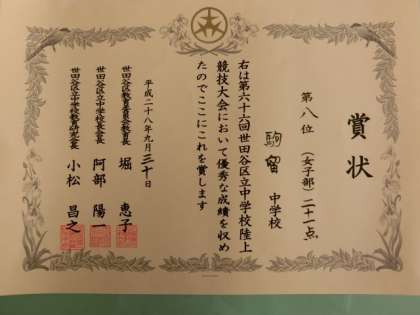 賞状
第八位 （女子部） 二十一点
駒留 中学校
右は第六十六回世田谷区立中学校陸上
競技大会において優秀な成績を収め
たのでここにこれを賞します
平成二十八年九月三十日
世田谷区教育委員会教育長 堀 恵子
世田谷区立中学校長会長 阿部 陽一
世田谷区立中学校教育研究会長 小松 昌之